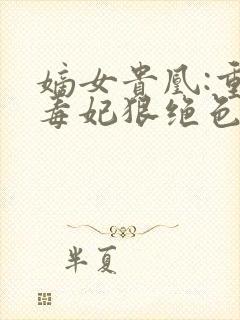 嫡女贵凰:重
毒妃狠绝色
半夏